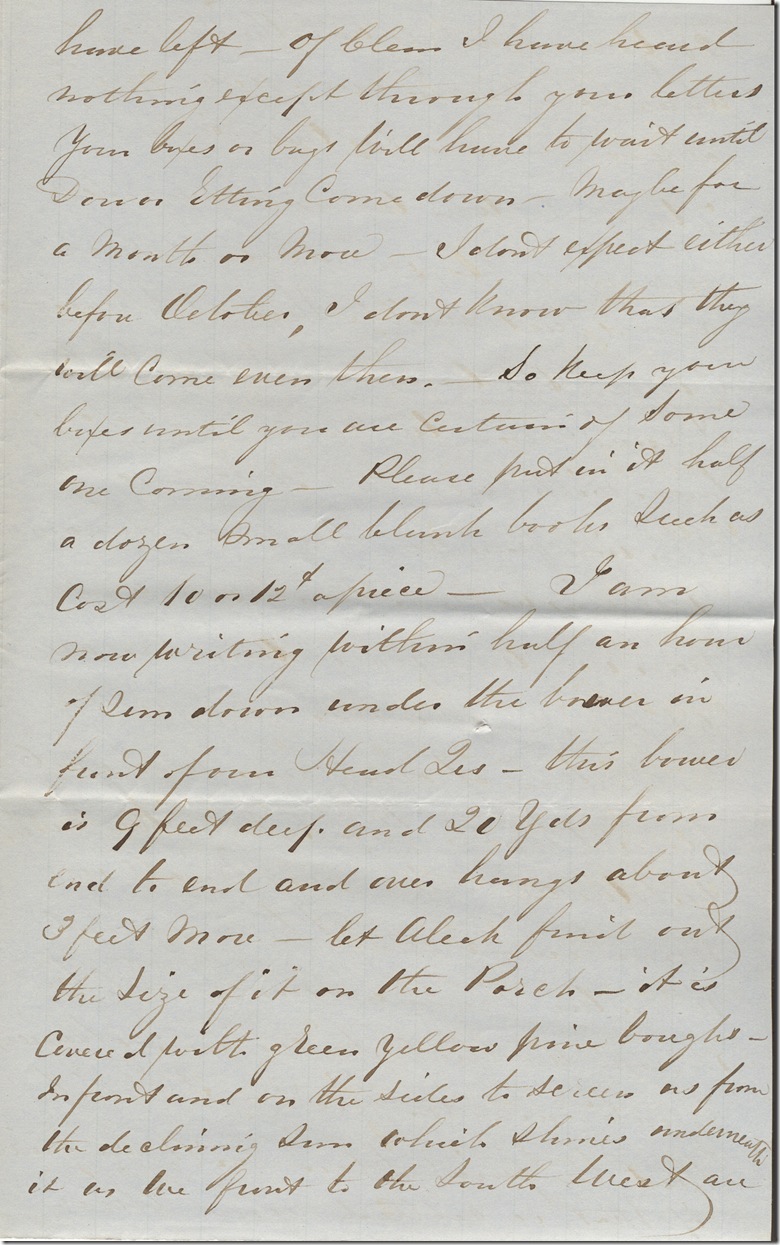 have left — of Clem I have heard
nothing except through your letters
Your boxes or bags Will have to wait until
Dow or Etting Come down — Maybe for
a Month or More — I dont expect either
before October, I dont Know that they
will Come even then. — So Keep your
boxes until you are Certain of Some
one Coming — Please put in it half
a dozen small blank books Such as
Cost 10 or 12¢ apiece — I am
now writing within half an hour
of Sun down under the bower in
front of our Head Qrs — this bower
is 9 feet deep. and 20 Yds from
end to end and over hangs about
3 feet More — let Aleck find out
the Size of it on the Porch — it is
Covered with green Yellow pine boughs —
In front and on the sides to screen us from
the declining Sun which Shines underneath
it as we front to the South West are